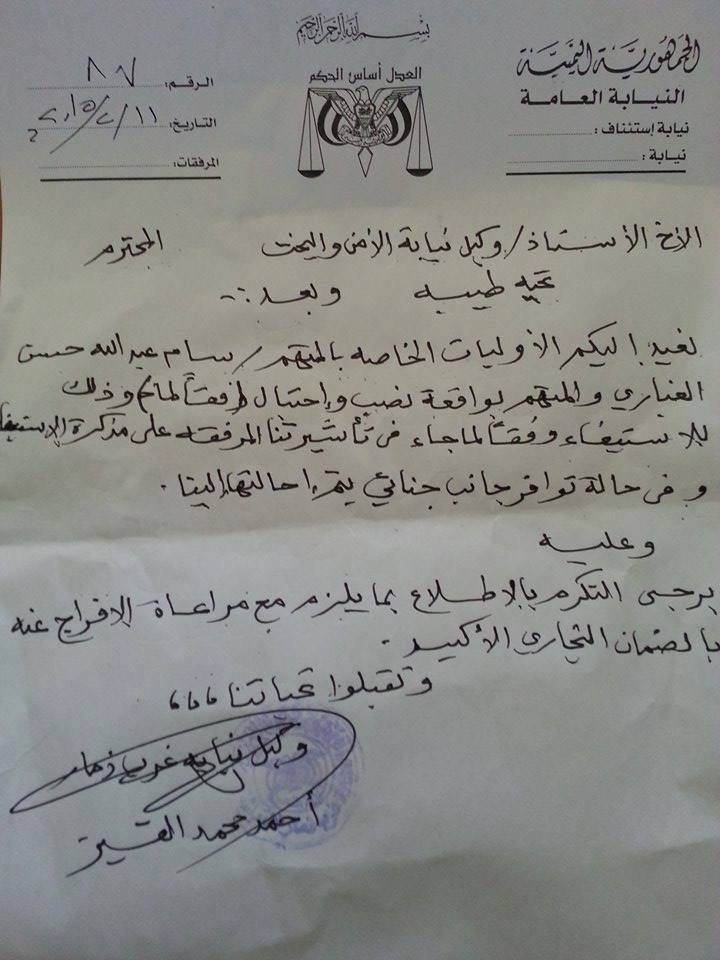 بسم الله الرحمن الرحيم
الجمهورية اليمنية
النيابة العامة
نيابة إستئناف :
نيابة :
العدل أساس الحكم
الرقم: ٨٧
التاريخ: ١١/٢/٢٠١٥
المرفقات:
الأخ الأستاذ/ وكيل نيابة الأمن والبحث المحترم
تحيه طيبه وبعد:--
نعيد إليكم الأوليات الخاصه بالمتهم/ بسام عبدالله حسن
العنباري والمتهم بواقعة نصب وإحتيال وذلك
للاستيفاء وفقاً لما جاء في تأشيرتنا المرفقه على مذكرة الاستيفاء
و في حالة توافر جانب جنائي يتم إحالتها إلينا .
وعليه
يرجى التكرم بالإطلاع بما يلزم مع مراعاة الافراج عنه
بالضمان التجاري الأكيد .
وتقبلوا تحياتنا ،،،
وكيل نيابة غرب ذمار
أحمد محمد